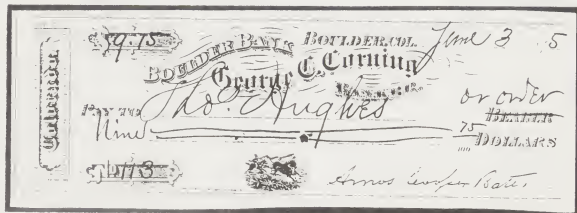 $9.75 BOULDER BANK BOULDER, COL. June 3 5
George C. Corning
BANKER.
PAY TO Tho. Hughes or order
BEARER
Nine 75 DOLLARS
No. 113 Amos Cooper Bates.